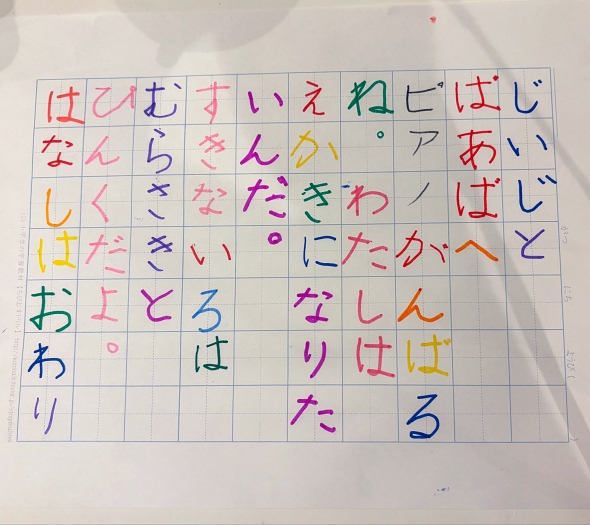 じいじと
ばあばへ
ピアノがんばる
ね。わたしは
えかきになりた
いんだ。
すきないろは
むらさきと
ぴんくだよ。
はなしはおわり